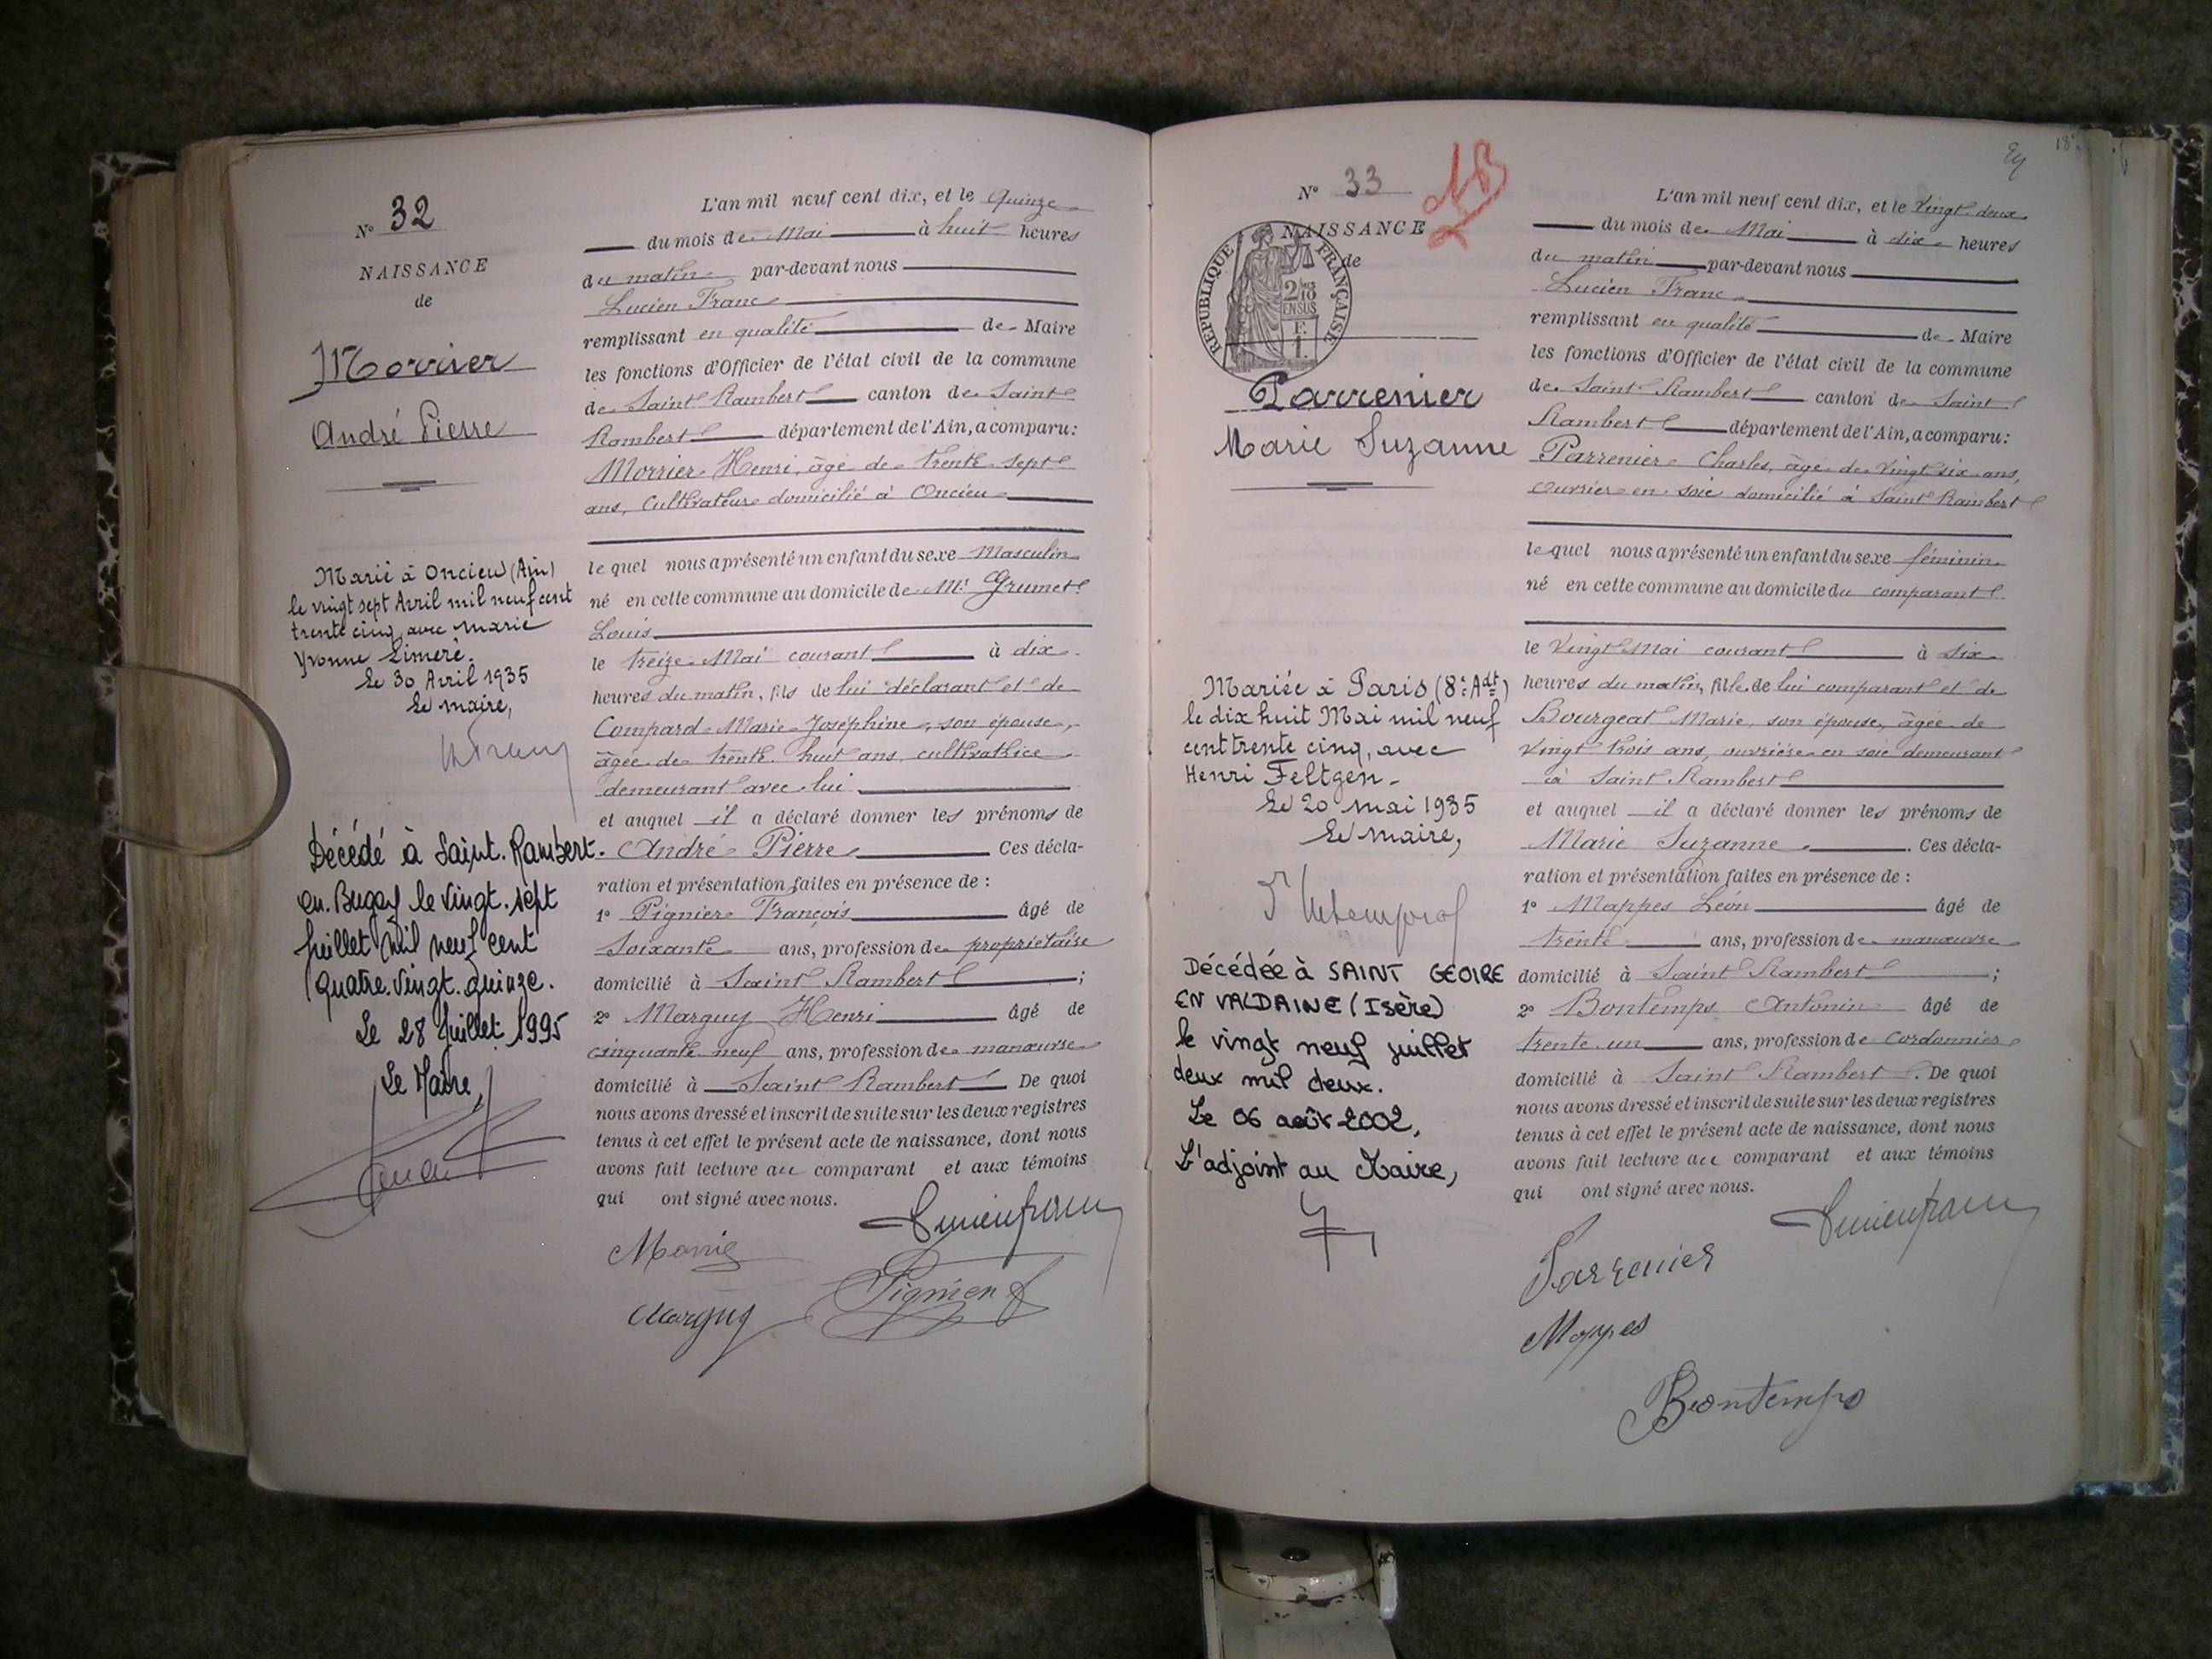 N° 32
NAISSANCE
de
Morrier
André Pierre
Marié à Oncieu (Ain)
le vingt sept Avril mil neuf cent
trente cinq avec Marie
Yvonne
Le 30 Avril 1935
Le maire,
Décédé à Saint. Rambert.
en. Bugey le vingt. sept
juillet mil neuf cent
quatre. vingt. quinze.
Le 28 juillet 1995
Le Maire,
L'an mil neuf cent dix, et le Quinze
du mois de Mai à huit heures
du matin par-devant nous
Lucien Franc
remplissant en qualité de Maire
les fonctions d'Officier de l'état civil de la commune
de Saint Rambert canton de Saint
Rambert département de l'Ain, a comparu:
Morrier Henri, âgé de trente sept
ans, Cultivateur domicilié à Oncieu
le quel nous a présenté un enfant du sexe Masculin
né en cette commune au domicile de Mr Grumet
Louis
le treize Mai courant à dix
heures du matin, fils de lui déclarant et de
Compard Marie Joséphine, son épouse,
âgée de trente huit ans, cultivatrice
demeurant avec lui
et auquel il a déclaré donner les prénoms de
André Pierre Ces décla-
ration et présentation faites en présence de :
1° Pignier François âgé de
Soixante ans, profession de propriétaire
domicilié à Saint Rambert ;
2° Marguy Henri âgé de
cinquante neuf ans, profession de manœuvre
domicilié à Saint Rambert De quoi
nous avons dressé et inscrit de suite sur les deux registres
tenus à cet effet le présent acte de naissance, dont nous
avons fait lecture au comparant et aux témoins
qui ont signé avec nous.
Lucien Franc
Morrier
Pignier F
Marguy
N° 33
NAISSANCE
de
RÉPUBLIQUE FRANÇAISE
2/10
EN SUS
F.
1.
Parrenier
Marie Suzanne
Mariée à Paris (8e Adt)
le dix huit Mai mil neuf
cent trente cinq, avec
Henri Feltgen.
Le 20 mai 1935
Le maire,
Décédée à SAINT GEOIRE
EN VALDAINE (Isère)
le vingt neuf juillet
deux mil deux.
Le 06 août 2002,
L'adjoint au Maire,
L'an mil neuf cent dix, et le Vingt deux
du mois de Mai à six heures
du matin par-devant nous
Lucien Franc
remplissant en qualité de Maire
les fonctions d'Officier de l'état civil de la commune
de Saint Rambert canton de Saint
Rambert département de l'Ain, a comparu:
Parrenier Charles, âgé de vingt six ans,
ouvrier en soie domicilié à Saint Rambert
le quel nous a présenté un enfant du sexe féminin
né en cette commune au domicile du comparant
le Vingt Mai courant à six
heures du matin, fille de lui comparant et de
Bourgeat Marie, son épouse, âgée de
vingt trois ans, ouvrière en soie demeurant
à Saint Rambert
et auquel il a déclaré donner les prénoms de
Marie Suzanne . Ces décla-
ration et présentation faites en présence de :
1° Mappes Léon âgé de
trente ans, profession de manœuvre
domicilié à Saint Rambert ;
2° Bontemps Antonin âgé de
trente un ans, profession de Cordonnier
domicilié à Saint Rambert . De quoi
nous avons dressé et inscrit de suite sur les deux registres
tenus à cet effet le présent acte de naissance, dont nous
avons fait lecture au comparant et aux témoins
qui ont signé avec nous.
Lucien Franc
Parrenier
Mappes
Bontemps